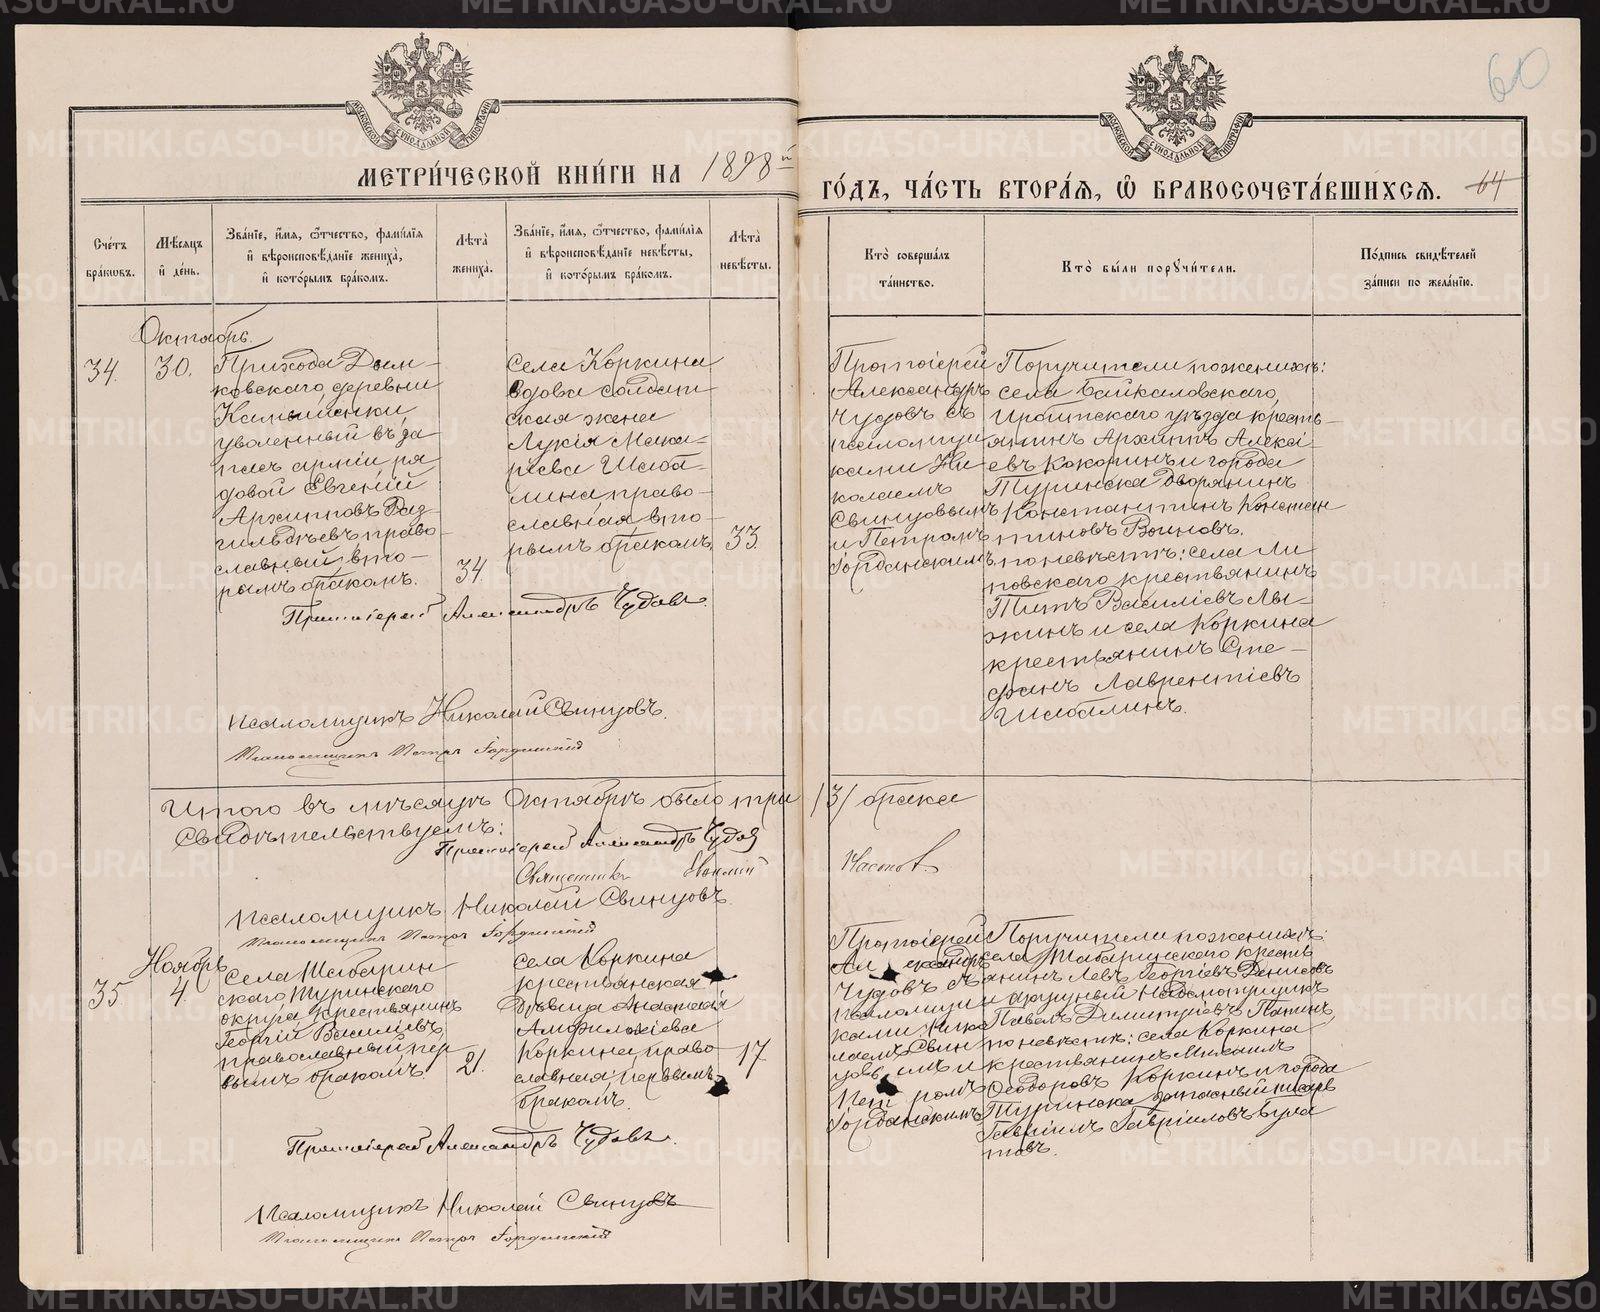 60
МЕТРИ́ЧЕСКОЙ КНИ́ГИ НА 1898й ГО́ДЪ, ЧА́СТЬ ВТОРА́Я, Ѡ БРАКОСОЧЕТА́ВШИХСЯ.
64
Сче́тъ бра́ковъ.
Мѣ́сяцъ и де́нь.
Зва́нїе, и́мя, ѻ́тчество, фами́лїя и вѣроисповѣ́данїе жениха̀, и кото́рымъ бра́комъ.
Лѣ́та жениха̀.
Зва́нїе, и́мя, ѻ́тчество, фами́лїя и вѣроисповѣ́данїе невѣ́сты, и кото́рымъ бра́комъ.
Лѣ́та невѣ́сты.
Кто̀ соверша́лъ та́инство.
Кто̀ бы́ли поручи́тели.
По́дпись свидѣ́телей за́писи по жела́нїю.
Октябрь.
34.
30.
Прихода Дым-
ковскаго деревни
Камышенки
уволенный въ за
пасъ арміи ря
довой Евгеній
Архиповъ Раз-
гильдѣевъ право-
славный, вто-
рымъ бракомъ.
34.
села Коркина
вдова солдат
ская жена
Лукія Мака-
рѣева Шаба-
лина право-
славная вто-
рымъ бракомъ.
33.
Протоіерей
Александръ
Чудовъ съ
псаломщи
ками Ни-
колаемъ
Свинцовымъ
и Петромъ
Горданскимъ
Поручители по женихѣ:
села Байкаловскаго
Ирбитскаго уѣзда кресть-
янинъ Архипъ Алексѣ-
евъ Кокоринъ и города
Туринска дворянинъ
Константинъ Констан
тиновъ Воиновъ.
по невѣстѣ: села Ли
повскаго крестьянинъ
Титъ Василіевъ Лы-
жинъ и села Коркина
крестьянинъ Сте-
фанъ Лаврентіевъ
Шабалинъ.
Протоіерей Александръ Чудовъ.
Псаломщикъ Николай Свинцовъ.
Псаломщикъ Петръ Горданскій
Итого въ мѣсяцѣ Октябрѣ было три /3/ брака
Свидѣтельствуемъ:
Протоіерей Александръ Чудов
Священникъ
Псаломщикъ Николай Свинцовъ.
Псаломщикъ Петръ Горданскій
Ноябрь
35
4.
Села Шабарин
скаго Туринскаго
округа крестьянинъ
Георгій Василіевъ
православный, пер
вымъ бракомъ.
21.
села Коркина
крестьянская
дѣвица Анастасія
Амфилохіева
Коркина, право
славная, первымъ
бракомъ.
17.
Протоіерей
Александръ
Чудовъ съ
псаломщи
ками Нико
лаемъ Свин
цовымъ и
Петромъ
Горданскимъ
Поручители по женихѣ:
села Табаринскаго кресть
янинъ Левъ Георгіевъ Денисовъ
Павелъ Димитріевъ
по невѣстѣ: села Коркина
крестьянинъ Михаилъ
Ѳеодоровъ Коркинъ и города
Туринска запасный писарь
Гавріилъ Гавріиловъ Була
товъ.
Протоіерей Александръ Чудовъ.
Псаломщикъ Николай Свинцовъ
Псаломщикъ Петръ Горданскій
METRIKI.GASO-URAL.RU